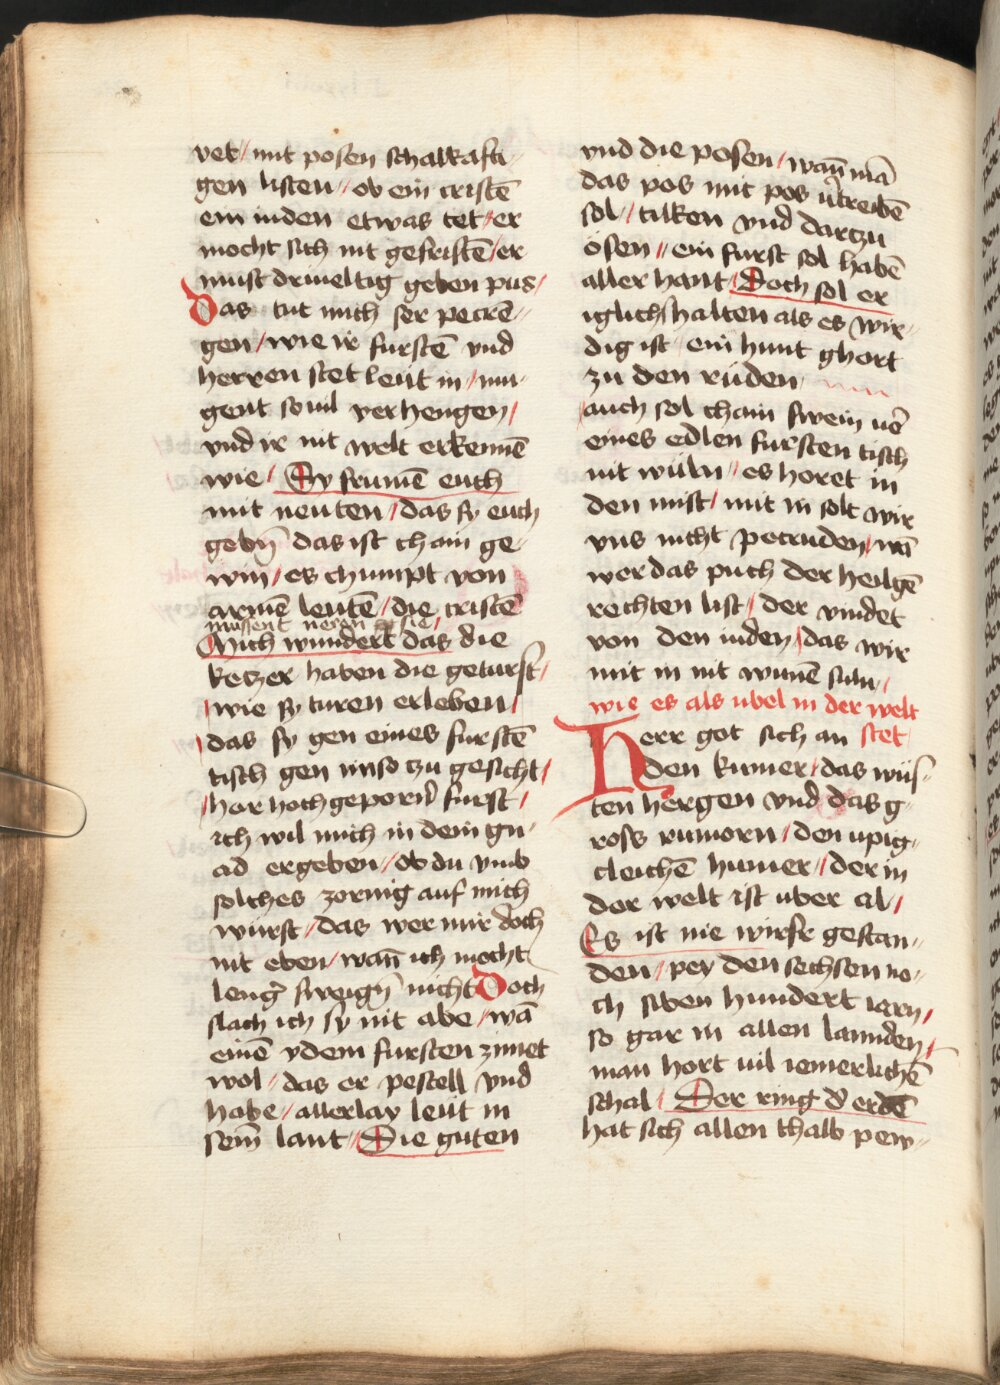 vet // mit posen schalkafti-
gen listen // ob ein cristē
ein iuden etwas tet / er
mocht sich nit gefristē / er
must driueltig geben pus /
Das tut mich ser petrē-
gen / wie ir furstē vnd
herren stet leut in / mu-
gent souil verhengen /
vnd ir nit welt erkennē
wie / Sy frumē euch
mit neuten / das sy euch
gebn̄ das ist chain ge-
win / es chumpt von
armē leutē / die cristē
mussent neren sie /
Mich wundert das die
ketzer haben die geturst /
/ wie sy turen erleben /
/ das sy gen eines furstē
tisch gen unso zu gesicht /
/ hor hochgeporn̄ furst /
ich wil mich in dein gn-
ad ergeben // ob du vmb
solches zornig auf mich
wurst / das wer mir doch
nit eben / wan̄ ich mocht
leng̉ sweign̄ nicht Doch
slach ich sy nit abe / wā
einē ydem fursten zimet
wol // das er pestell vnd
habe // allerlay leut in
seim̄ lant // Die guten
vnd die posen / wan̄ mā
das pos mit pos v̉treibē
sol / tilken vnd dartzu
osen // ein furst sol habē
aller hant / Doch sol er
iglichs halten als es wir-
dig ist / ein hunt ghort
zu den rüden
/ auch sol chain swein vỏ
eines edlen fursten tisch
nit wuln // es horet in
den mist / mit in solt wir
vns nicht petruden / wā
wer das puch der heilgē
rechten list / der vindet
von den iuden / das wir
mit in nit wunē suln /
wie es als ubel in der welt
stet
Herr got sich an
den kumer / das wüs-
ten hergen vnd das g-
ross rumorn / den upig-
cleichē humer // der in
der welt ist uber al /
Es ist nie wirser gestan-
den / pey den sechsen no-
ch siben hundert iarn /
so gar in allen lannden /
man hort uil iemerlichē
schal / Der ring d̉ erdē
hat sich allen thalb pew-